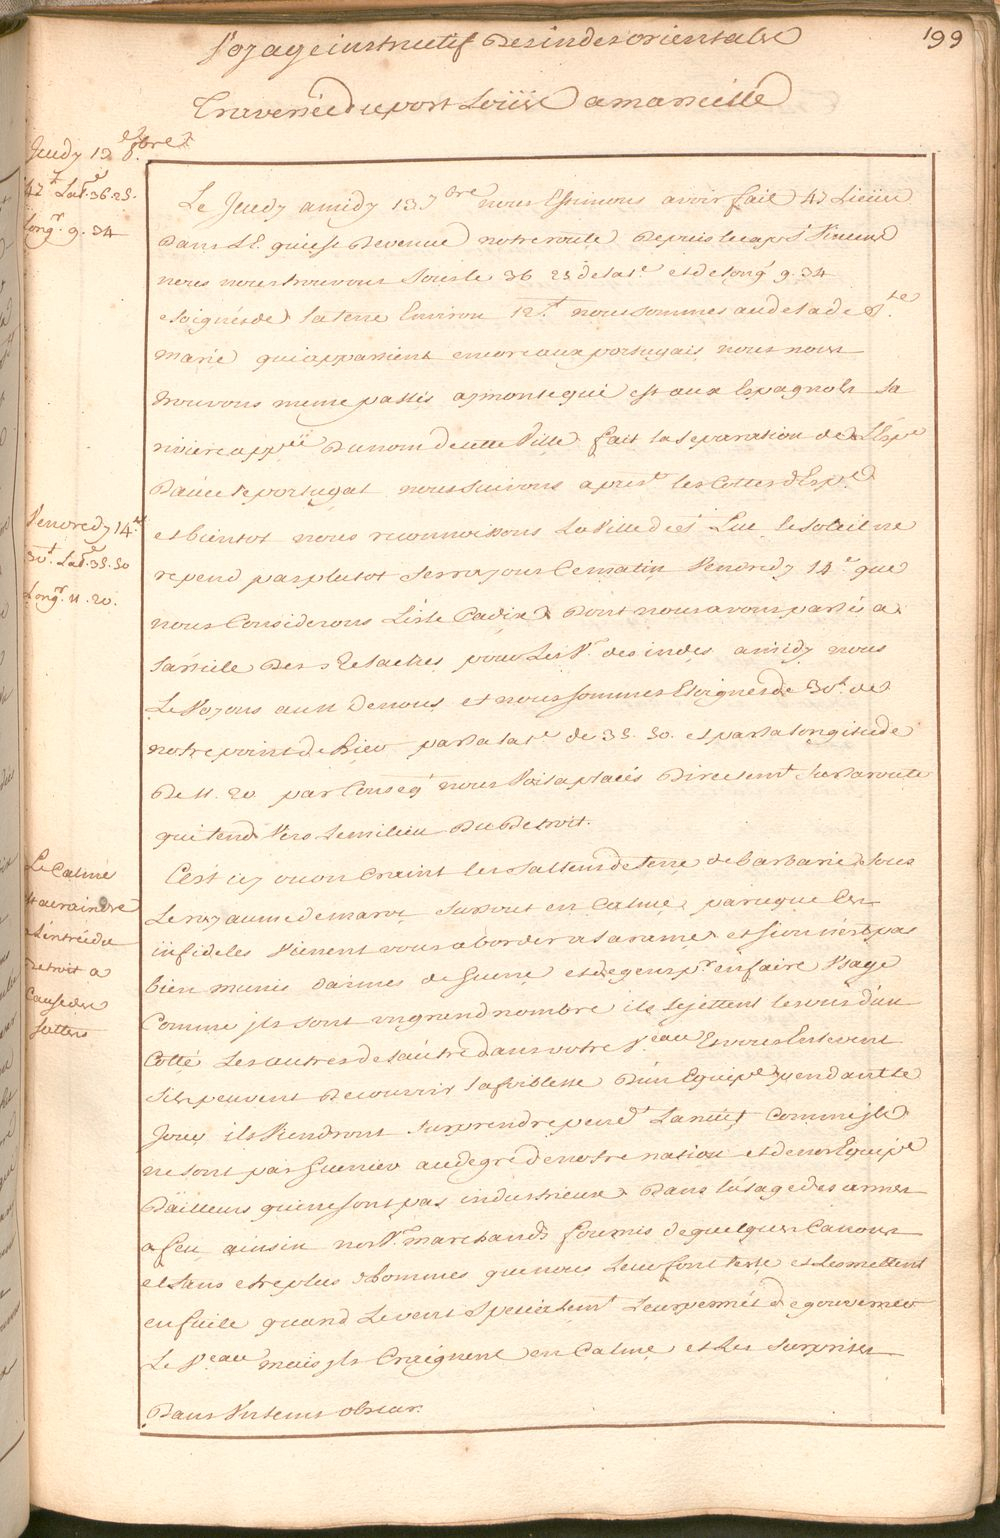 Voyage instructif Des indes orientales
199
Traversée du port Loüis a marseille
Jeudy 13 8.bre
47 l. Lat.e 36. 25.
Long.r 9. 34
Le Jeudy a midy 13 9bre nous Estimons avoir fait 47 Lieües
Dans L'E. qui est Devenue notre route Depuis le cap S.t Vincent
nous nous trouvons sous le 36 25 de lat.e et de long.r 9. 34
eloignés de la terre Environ 12 l. nous sommes au dela de S.te
marie qui appartient encore aux portugais nous nous
trouvons meme passés ayamonte qui est aux Espagnols La
riviere app.ée Du nom de cette Ville fait la separation de L'Esp.e
D'avec le portugal nous suivons apres les Costes d'Esp.e
et bientot nous reconnoissons La Ville de S.t Luc le soleil ne
Vendredy 14.e
30 l. Lat.e 35. 50
Long.r 11. 20.
repend pas plutot ses rayons Ce matin Vendredy 14.e que
nous Considerons L'isle Cadix Dont nous avons parlé a
L'article Des relaches pour Les V.x des indes a midy nous
Le Voyons au N Denous et nous sommes Eloignés de 30 l. de
notre point de hier par la lat.e de 35. 50. et par la longitude
De 11. 20 par Conseq.t nous Voila placés Directem.t sur la route
qui tend Vers Le milieu Du Detroit.
Le Calme
est a craindre
a L'entrée du
Detroit a
Cause des
saltins
C'est icy ou on Craint les saltins de terre de barbarie sous
Le royaume de maroc surtout en Calme, parce que Ces
infideles Vienent vous aborder a la rame et si on n'est pas
bien munis d'armes de Guerre et de gens p.r en faire Usage
Comme ils sont un grand nombre ils se jettent les uns d'un
Cotté Les autres de l'autre dans votre V.eau Et vous Enlevent
S'ils peuvent Decouvrir la foiblesse D'un Equip.e pendant le
Jour ils Viendront surprendre pend.t La nuit Comme ils
ne sont pas Guerriers au degré de notre nation et de nos Equip.e
D'ailleurs qui ne sont pas industrieux Dans L'usage des armes
a feu ainsi nos V.x marchands fournis de quelques Canons
et sans etre plus d'hommes que nous Leur font teste et Les mettent
en fuite quand Le vent Specialem.t Leur permet de gouverner
Le V.eau mais ils Craignent en Calme et Les surprises
Dans Un tems obscur.